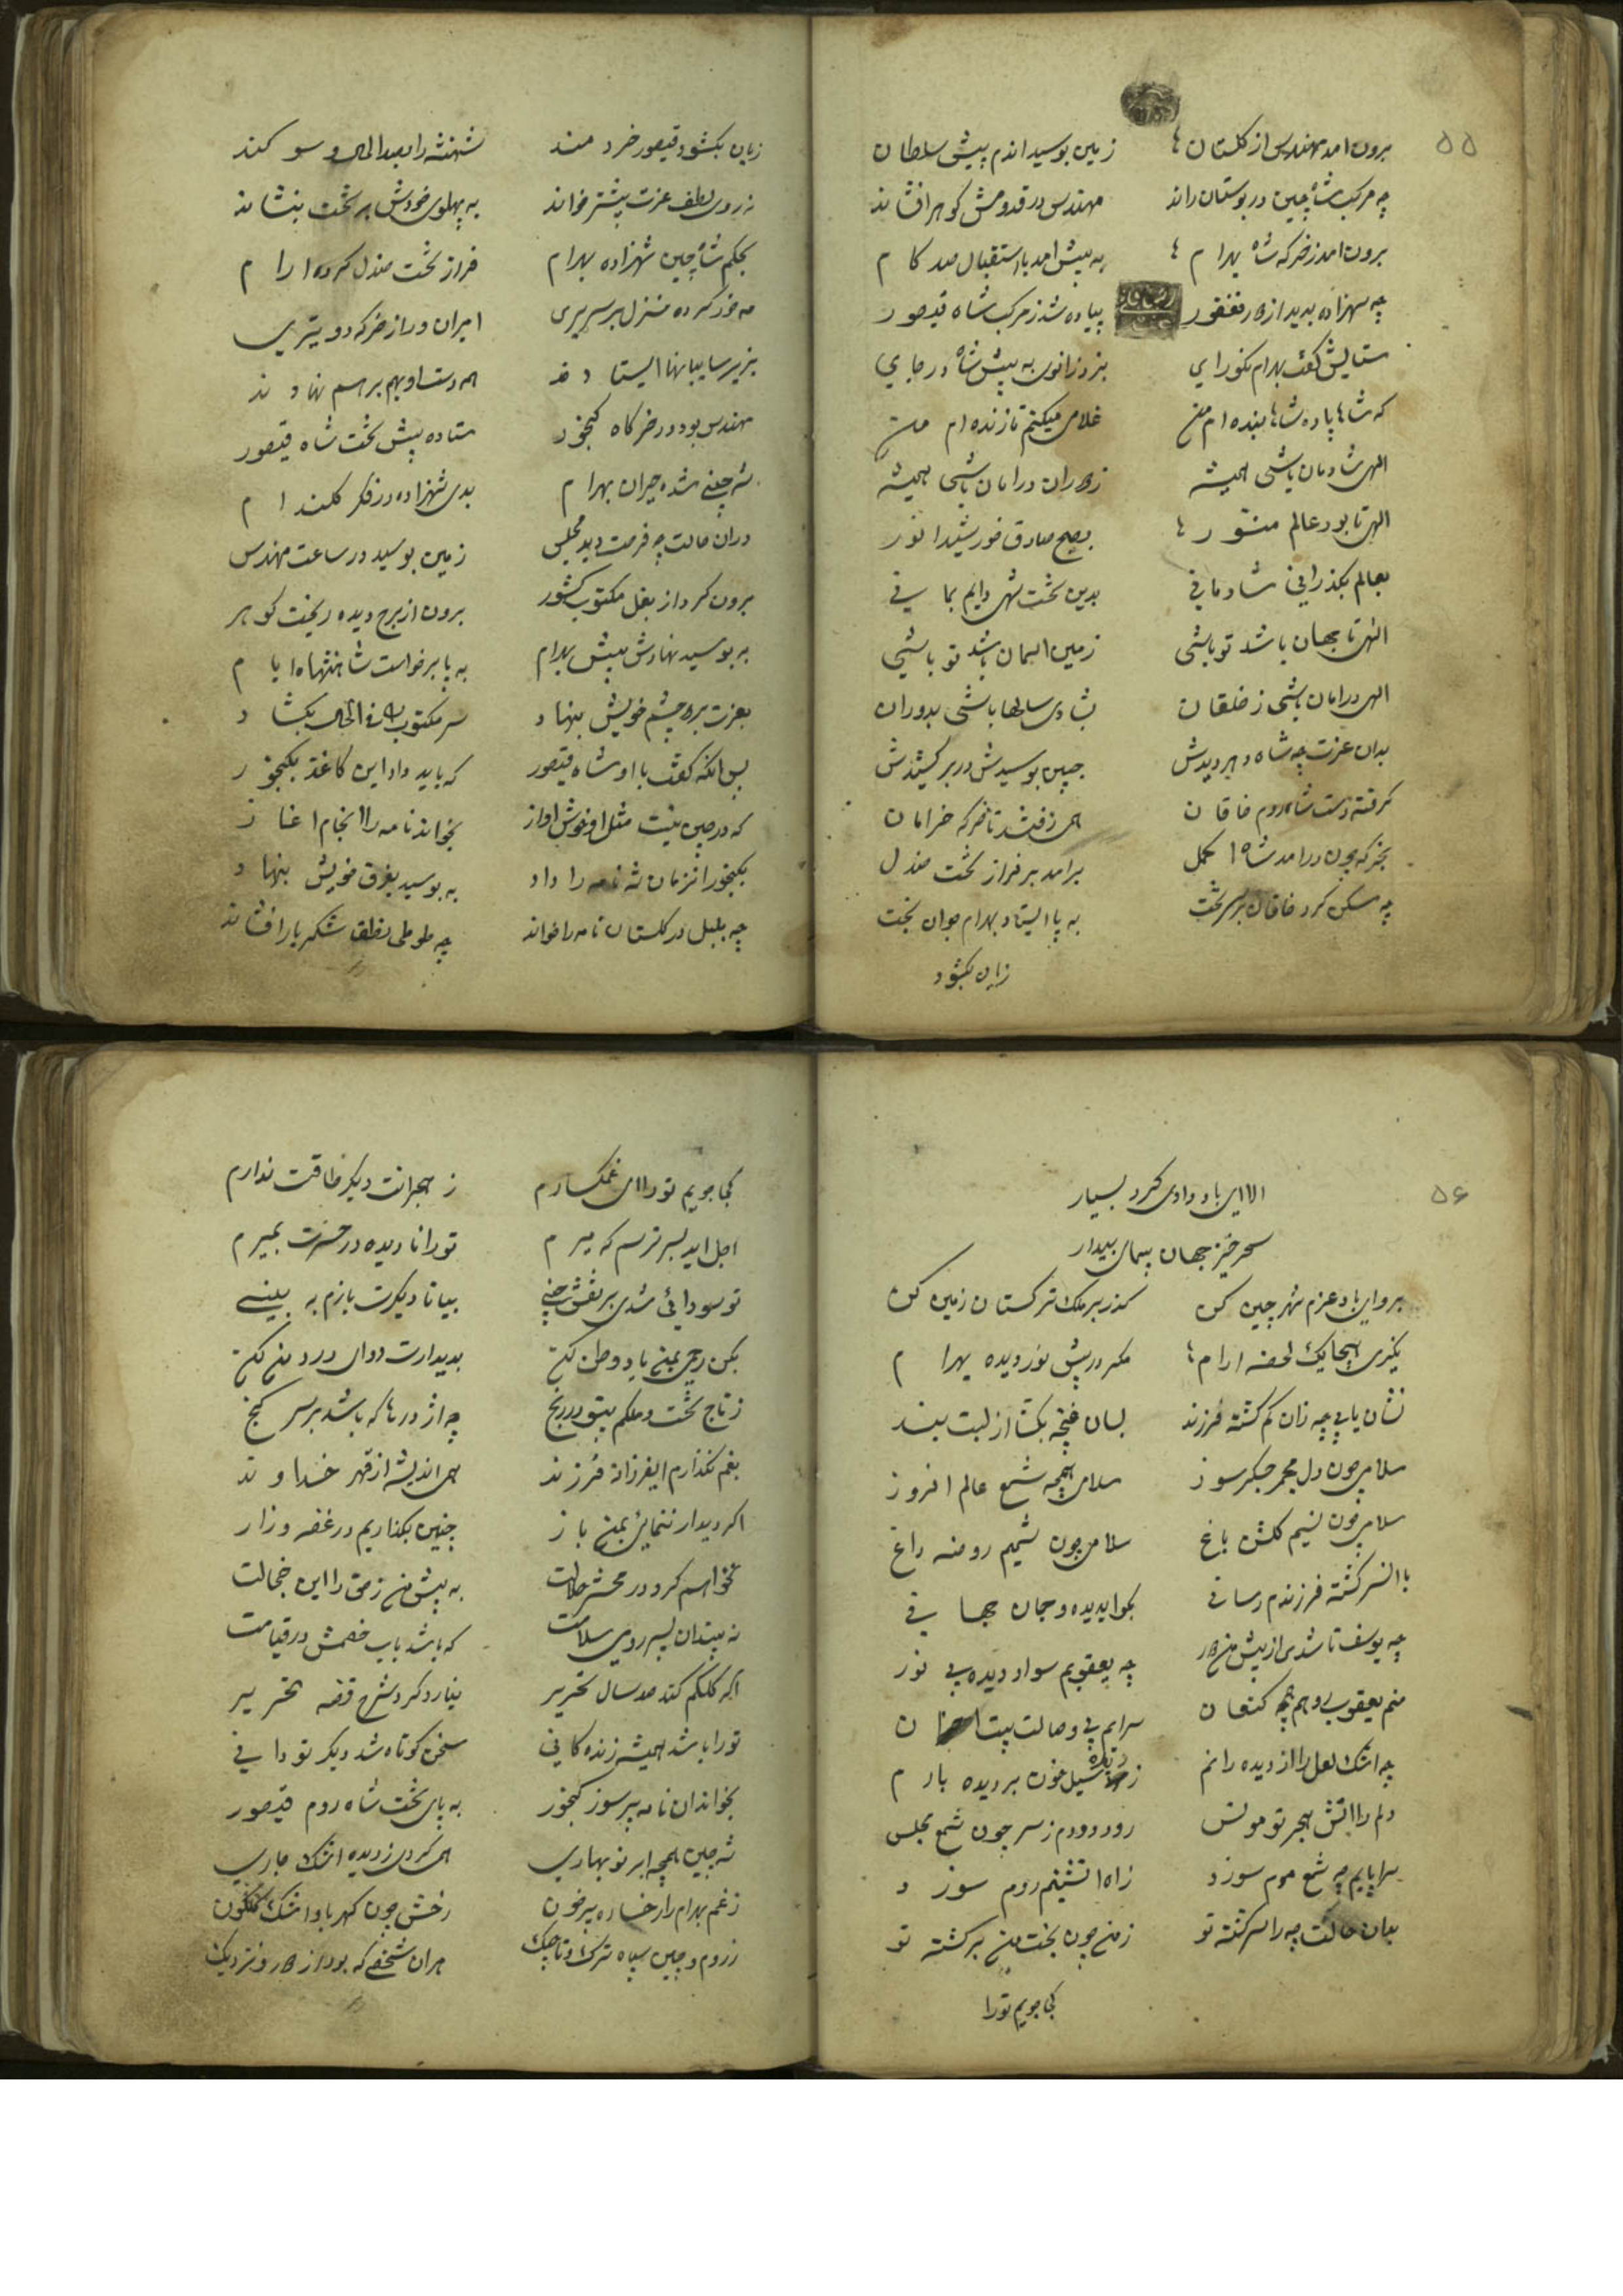 ۵۵
برون امد مهندس از کلستان ها زمین بوسید اندم پیش سلطان
چه مرکب شاه چین در بوستان راند مهندس در قدومش کوهر افشاند
برون امد ز خرکه شاه بهرام ها به پیش امد با استقبال صد کام
چه شهزاده بدید از دور فغفور پیاده شد ز مرکب شاه قیصور
ستایش کفت بهرام نکورای بزد زانوی به پیش شاه در جای
که شاها پادشاها بنده ام من غلامی میکنم تا زنده ام من
الهی شادمان باشی همیشه ز دوران در امان باشی همیشه
الهی تا بود عالم منور ها بصبح صادق خورشید انور
بعالم بکذرانی شادمانی بدین تخت شهی دایم بمانی
الهی تا جهان باشد تو باشی زمین اسمان باشد تو باشی
الهی در امان باشی ز خلقان بشادی سالها باشی بدوران
بدان عزت چه شاه دهر دیدش جبین بوسیدش در بر کشیدش
کرفته دست شاه روم خاقان همی رفتند تا خرکه خرامان
بخرکه چون درامد شاه اکمل برامد بر فراز تخت صندل
چه مسکن کرد خاقان بر سر تخت به پا ایستاد بهرام جوان بخت
زبان بکشود
زبان بکشود قیصور خردمند شهنشه را بصد الحاح و سوکند
ز روی لطف عزت پیشتر خواند به پهلوی خودش بر تخت بنشاند
بحکم شاه چین شهزاده بهرام فراز تخت صندل کرده ارام
مه خور کرده منزل بر سریری امیران و راز خرکه دو تیری
بزیر سایبانها ایستادند همه دست ادب بر هم نهادند
مهندس بود در خرکاه کنجور ستاده پیش تخت شاه قیصور
شه چینی شده حیران بهرام بدی شهزاده در فکر کلندام
در ان حالت چه فرصت دید مجلس زمین بوسید در ساعت مهندس
برون کرد از بغل مکتوب کشور برون از برج دیده ریخت کوهر
به بوسید نهادش پیش بهرام به پا برخواست شاهنشاه ایام
بعزت بر دو چشم خویش بنهاد سر مکتوب را فی الحال بکشاد
پس انکه کفت با او شاه قیصور که باید داد این کاغذ بکنجور
که در چین نیست مثل او خوش اواز بخواند نامه را انجام اغاز
بکنجور انزمان شه نامه را داد به بوسید بفرق خویش بنهاد
چه بلبل در کلستان نامه را خواند چه طوطی نطق شکر بار افشاند
۵۶
الا ای باد وادی کرد بسیار
سحر خیز جهان پیمای بیدار
برو ای باد عزم شهر چین کن کذر بر ملک ترکستان زمین کن
نکیری هیچ یک لحظه ارام ها مکر در پیش نور دیده بهرام
نشان یابی چه زان کم کشته فرزند بسان غنچه بکشا از لبت بند
سلامی چون دل مجمر جکر سوز سلامی همچه شمع عالم افروز
سلامی چون نسیم کلشن باغ سلامی چون شمیم روضه راغ
با انسر کشته فرزندم رسانی بکو ای دیده و جان جهانی
چه یوسف تا شدی از پیش من دور چه یعقوبم سواد دیده بی نور
منم یعقوب و هم چه کنعان سرایم بی وصالت بیت احزان
چه اشک لعل را از دیده رانم ز دیده سیل خون بر دیده بارم
دلم را اتش هجر تو مونس رود دودم ز سر چون شمع مجلس
سراپایم چه شمع موم سوزد ز اه اتشینم روم سوزد
بدان حالت چه را سرکشته تو ز من چون بخت من برکشته تو
کجا جویم تورا
کجا جویم تورا ای غمکسارم ز هجرانت دیکر طاقت ندارم
اجل اید بسر ترسم که میرم تورا نادیده در حسرت بمیرم
تو سودائی شدی بر نقش چینی بیا تا دیکرت بازم به بینی
بکن رحمی بمن یاد وطن کن بدیدارت دوای درد من کن
ز تاج تخت و ملکم بیتو در رنج چه اژدرها که باشد بر سر کنج
بغم نکذارم ایفرزانه فرزند همی اندیشه از قهر خداوند
اکر دیدار ننمائی بمن باز چنین بکذاریم در غصه و زار
نخواهم کرد در محشر حلالت به پیش من ز حق را این خجالت
نه بیند ان پسر روی سلامت که باشد باب خصمش در قیامت
اکر کلکم کند صد سال تحریر نیارد کرد شرح قصه تحریر
تورا باشد همیشه زنده کانی سخن کوتاه شد دیکر تو دانی
بخواند ان نامه پر سوز کنجور به پای تخت شاه روم قیصور
شه چین همچه ابر نو بهاری همی کردی ز دیده اشک جاری
ز غم بهرام را رخساره پر خون رخش چون کهربا و اشک کلکون
ز روم و چین سپاه ترک و تاجیک هران شخصی که بود از دور و نزدیک